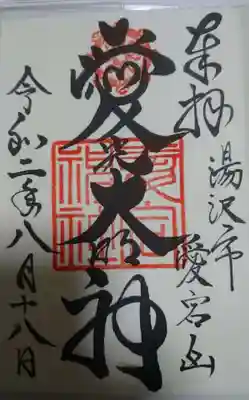 奉拝
湯沢市
愛宕山
愛大明神
愛宕神社
令和二年八月十八日